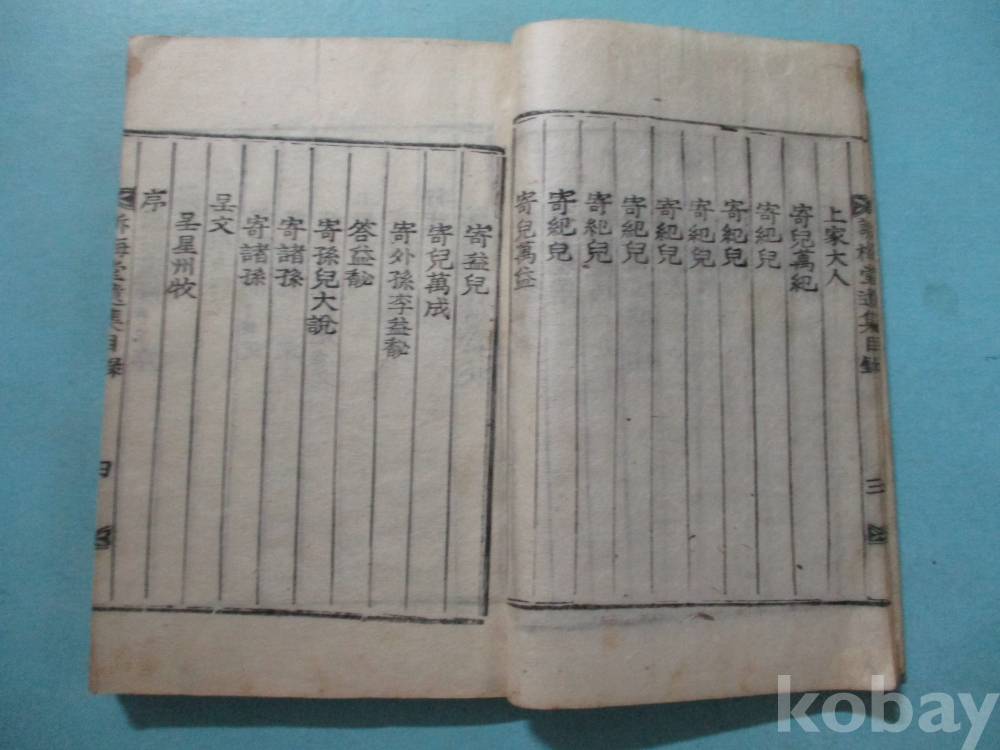 上家大人
寄兒萬紀
寄紀兒
寄紀兒
寄紀兒
寄紀兒
寄紀兒
寄紀兒
寄紀兒
寄兒萬益
寄益兒
寄兒萬成
寄外孫李益馝
答益馝
寄孫兒大說
寄諸孫
寄諸孫
呈文
呈星州牧
序
堂遺集目錄
三
堂遺集目錄
四
kobay